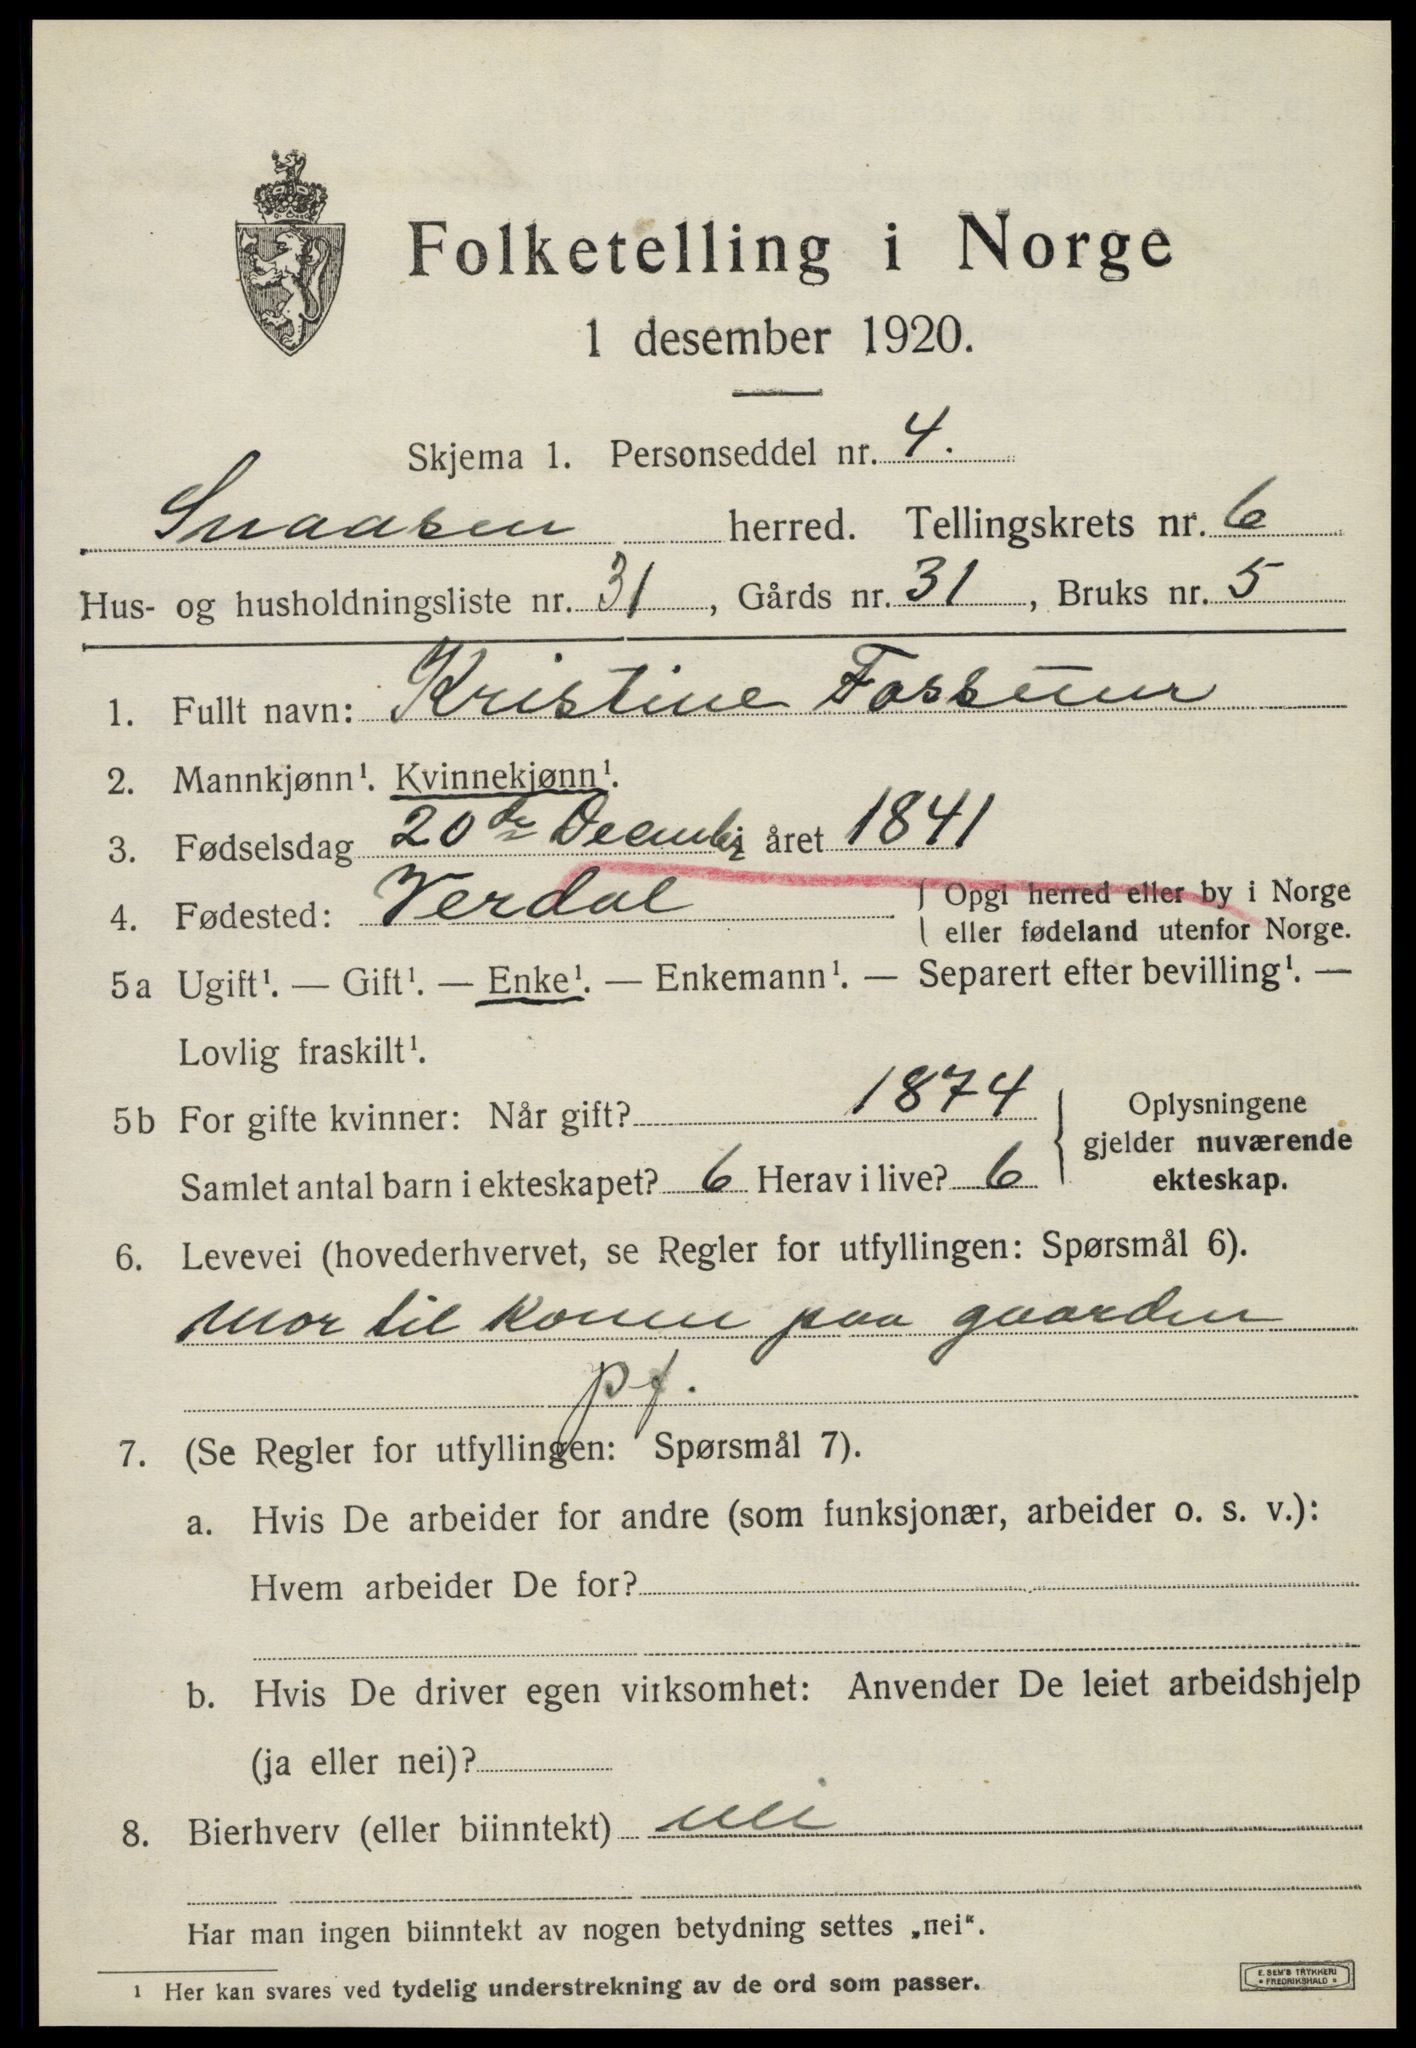 Folketelling i Norge
1 desember 1920.
Skjema 1. Personseddel nr. 4.
Snaasen herred. Tellingskrets nr. 6
Hus- og husholdningsliste nr. 31, Gårds nr. 31, Bruks nr. 5
1. Fullt navn: Kristine Fossum
2. Mannkjønn¹. Kvinnekjønn¹.
3. Fødselsdag 20de Decembr året 1841
4. Fødested: Verdal { Opgi herred eller by i Norge
eller fødeland utenfor Norge.
5a Ugift¹. — Gift¹. — Enke¹. — Enkemann¹. — Separert efter bevilling¹. —
Lovlig fraskilt¹.
5b For gifte kvinner: Når gift? 1874
Samlet antal barn i ekteskapet? 6 Herav i live? 6
Oplysningene
gjelder nuværende
ekteskap.
6. Levevei (hovederhvervet, se Regler for utfyllingen: Spørsmål 6).
Mor til konen paa gaarden
pf.
7. (Se Regler for utfyllingen: Spørsmål 7).
a. Hvis De arbeider for andre (som funksjonær, arbeider o. s. v.):
Hvem arbeider De for?
b. Hvis De driver egen virksomhet: Anvender De leiet arbeidshjelp
(ja eller nei)?
8. Bierhverv (eller biinntekt) nei
Har man ingen biinntekt av nogen betydning settes „nei“.
¹ Her kan svares ved tydelig understrekning av de ord som passer.
E. SEM'S TRYKKERI
FREDRIKSHALD